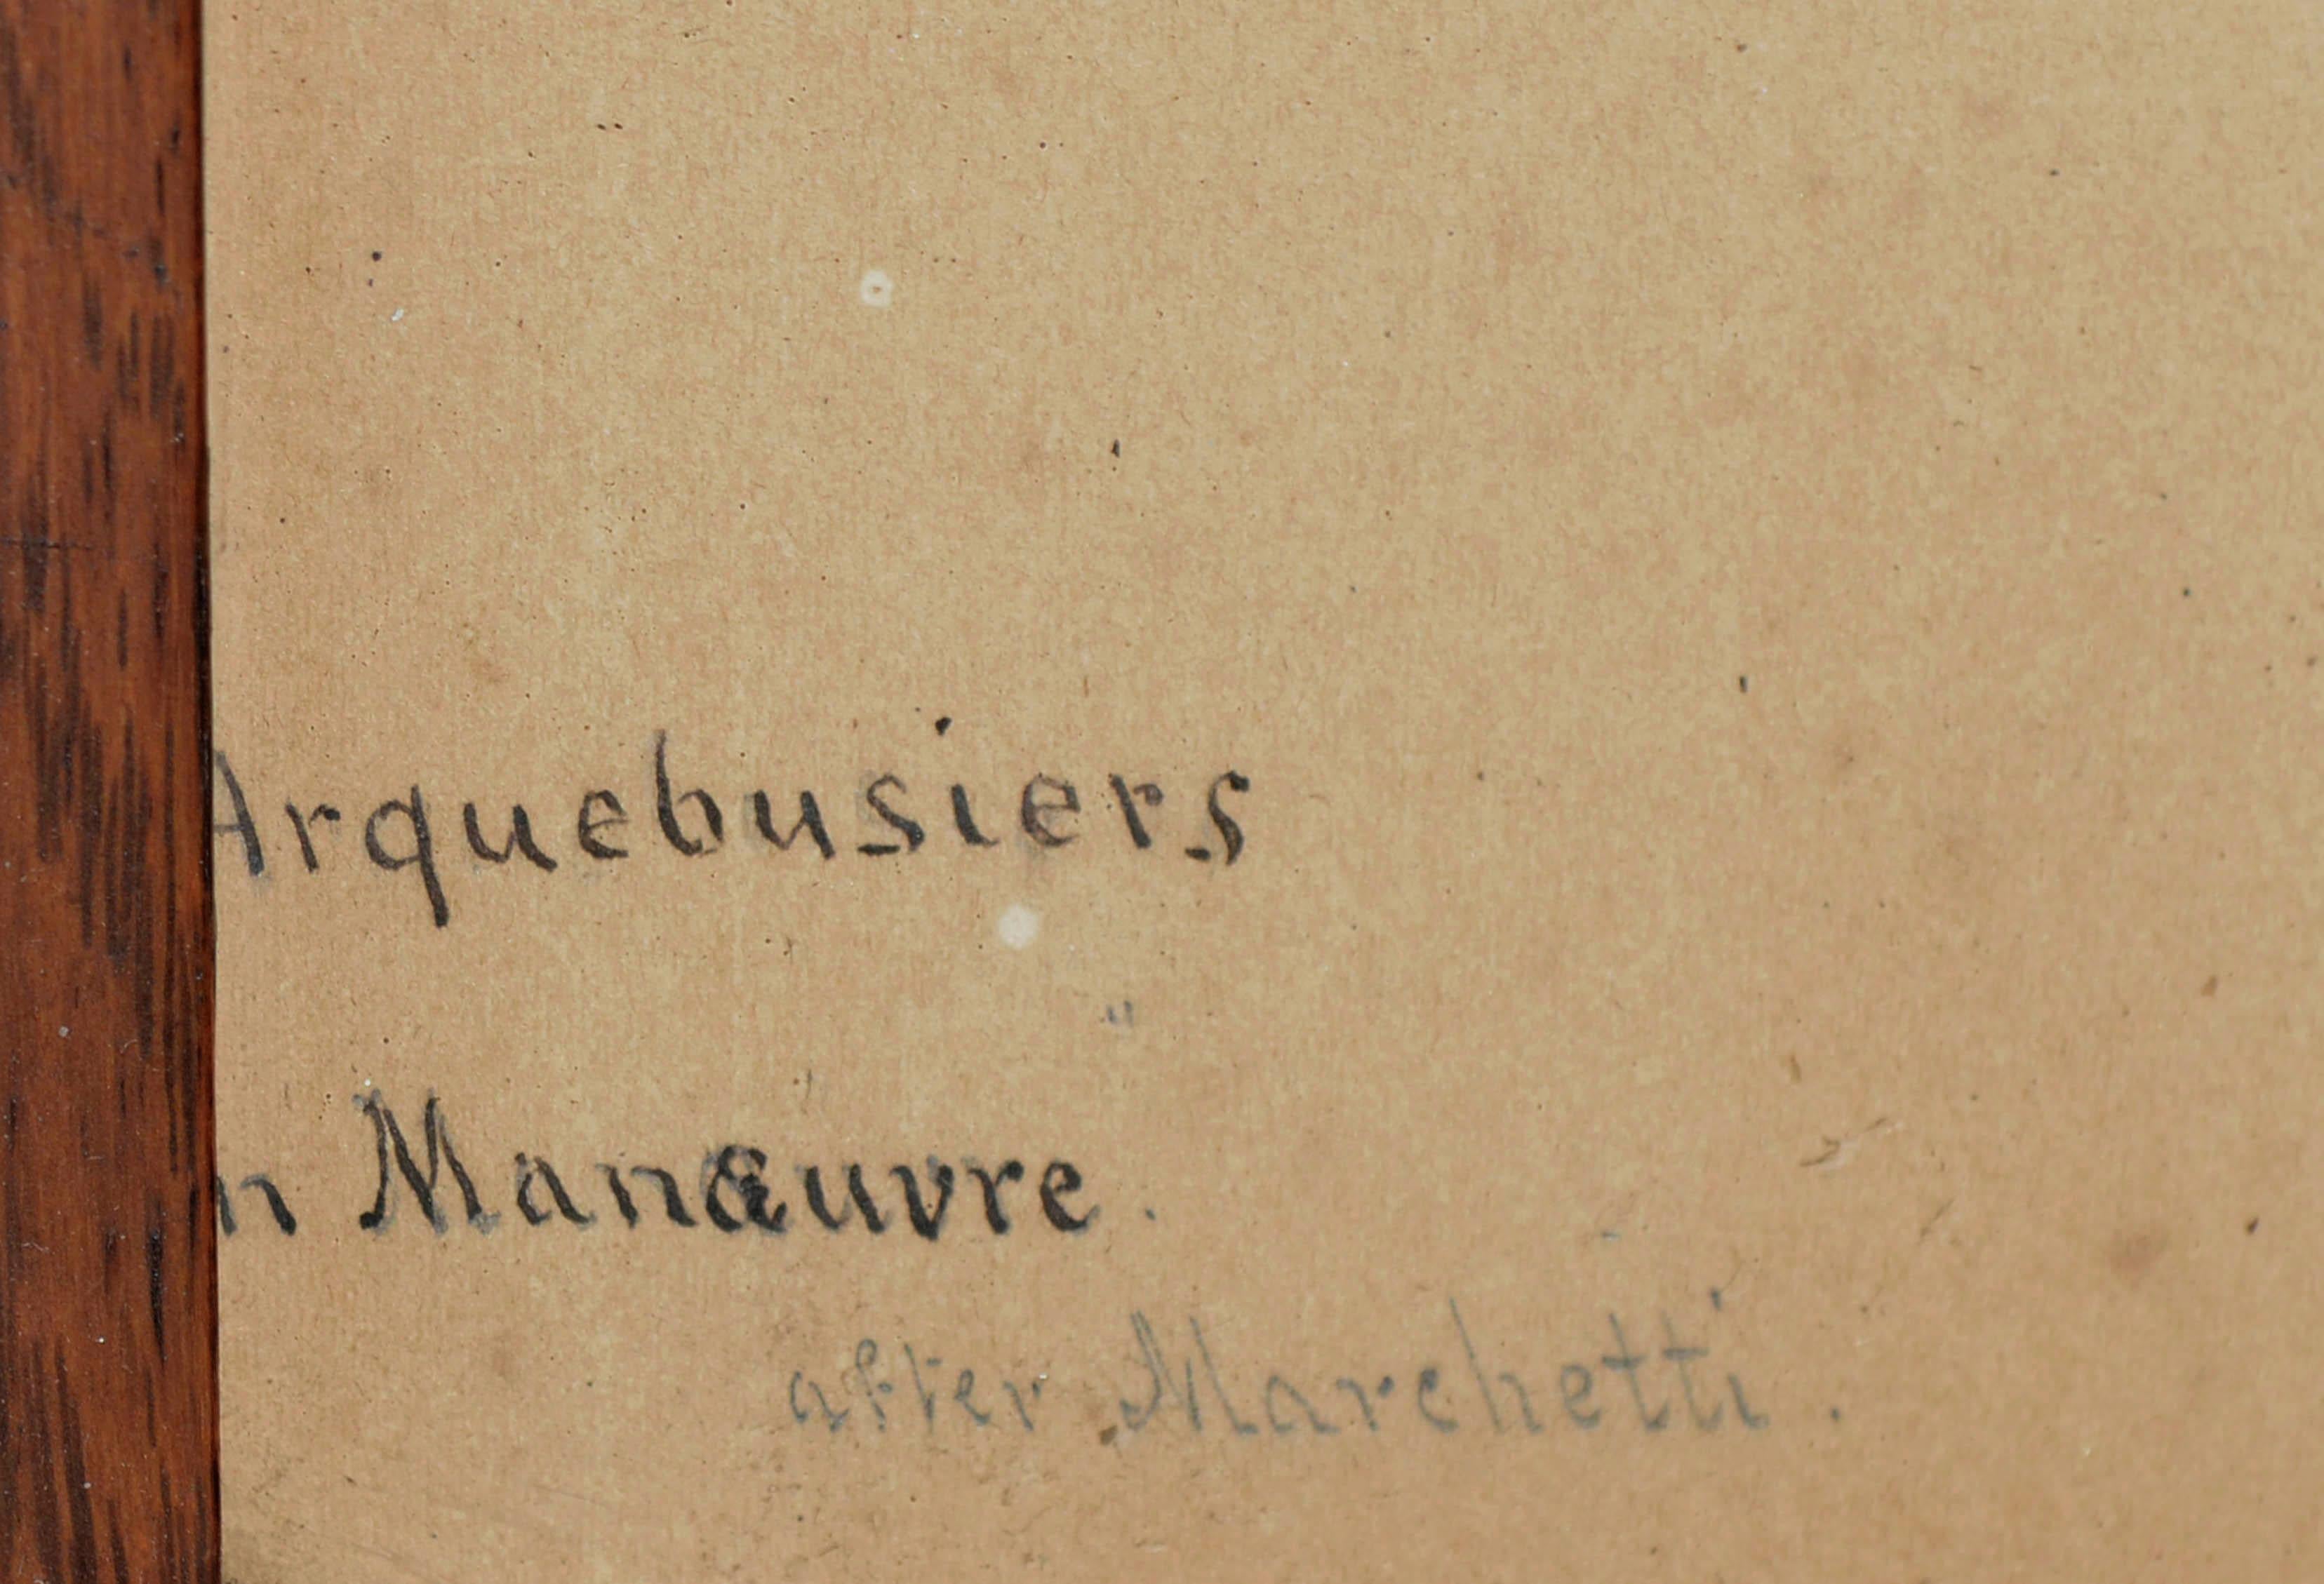 Arquebusiers
n Manœuvre.
after Marchetti.